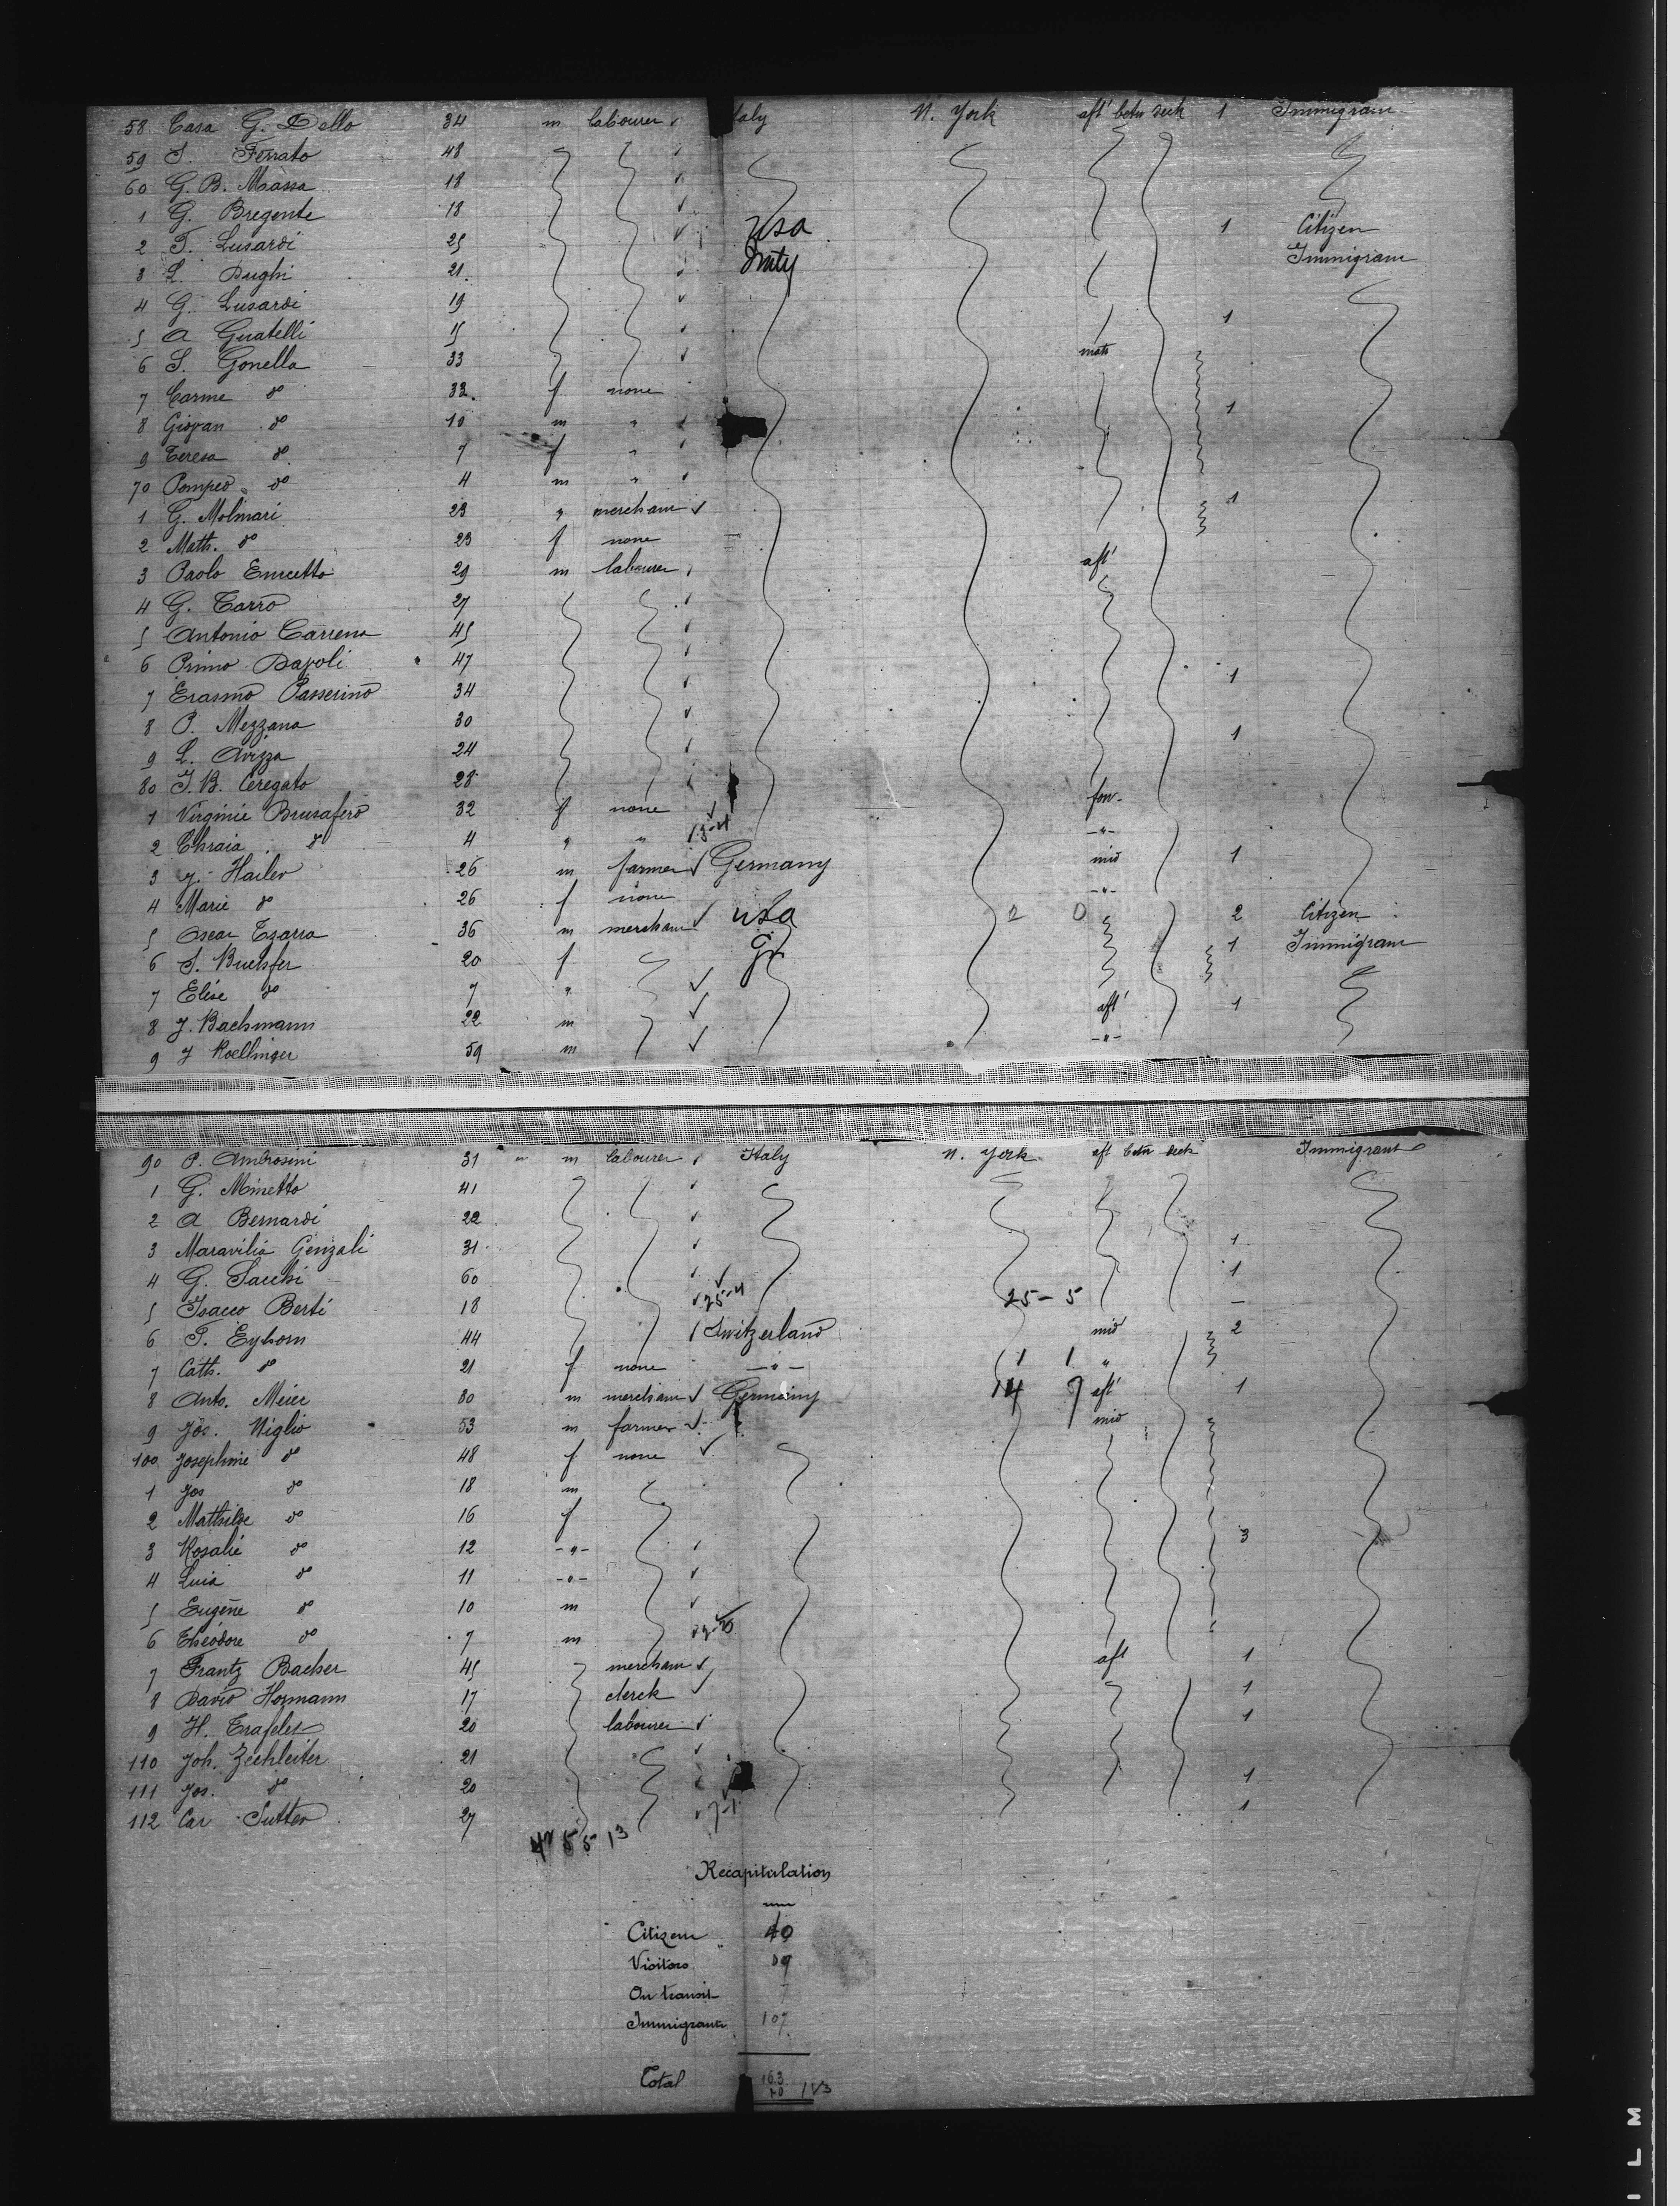 58 Casa G. Dello 34 m labourer Italy N. York aft' betw deck 1 Immigram
59 S. Ferrato 48
60 G. B. Massa 18
1 G. Bregente 18
2 F. Lusardi 25 USA 1 Citizen
3 L. Dughi 21 Immigram
4 G. Lusardi 19
5 A Guatelli 15 1
6 S. Gonella 33 mid
7 Carme do 32 f none
8 Giovan do 10 m " 1
9 Teresa do 7 f "
70 Pompeo do 4 m "
1 G. Molinari 23 " mercham 1
2 Math. do 23 f none
3 Paolo Enricetto 29 m labourer aft'
4 G. Tarro 27
5 Antonio Carrena 45
6 Primo Dapoli 47
7 Erasmo Passerino 34 1
8 P. Mezzana 30
9 L. Avizza 24 1
80 J. B. Ceregato 28
1 Virginie Brusafero 32 f none for-
2 Chraia do 4 " " 13-4 -"-
3 J. Hailer 26 m farmer Germany mid 1
4 Marie do 26 f none -"-
5 Oscar Tzarra 36 m mercham USA 2 0 2 Citizen
6 S. Buelsfer 20 f Gr 1 Immigram
7 Elise do 7 "
8 J. Bachmann 22 m aft' 1
9 J Koellinger 59 m -"-
90 P. Ambrosini 31 m labourer Italy N. York aft betw deck Immigrant
1 G. Minetto 41
2 A Bernardi 22
3 Maravilia Genzali 31 1
4 G. Sacchi 60 1
5 Isacco Berti 18 25-4 25-5 -
6 F. Eyhorn 44 Switzerland mid 2
7 Cath. do 21 f none -"- 1 1 "
8 Anto. Meier 30 m mercham Germany 14 9 aft' 1
9 Jos. Niglio 53 m farmer mid
100 Josephine do 48 f none
1 Jos do 18 m
2 Mathilde do 16 f
3 Rosalie do 12 -"- 3
4 Luia do 11 -"-
5 Eugène do 10 m
6 Théodore do 7 m
7 Frantz Bacher 45 mercham aft 1
8 David Hozmann 17 clerck 1
9 H. Trafelet 20 labourer 1
110 Joh. Zechleiter 21
111 Jos. do 20 1
112 Car Sutter 27 7-1 1
55 13
Recapitulation
Citizen
Visitors
On transit
Immigrants 107
Total 163